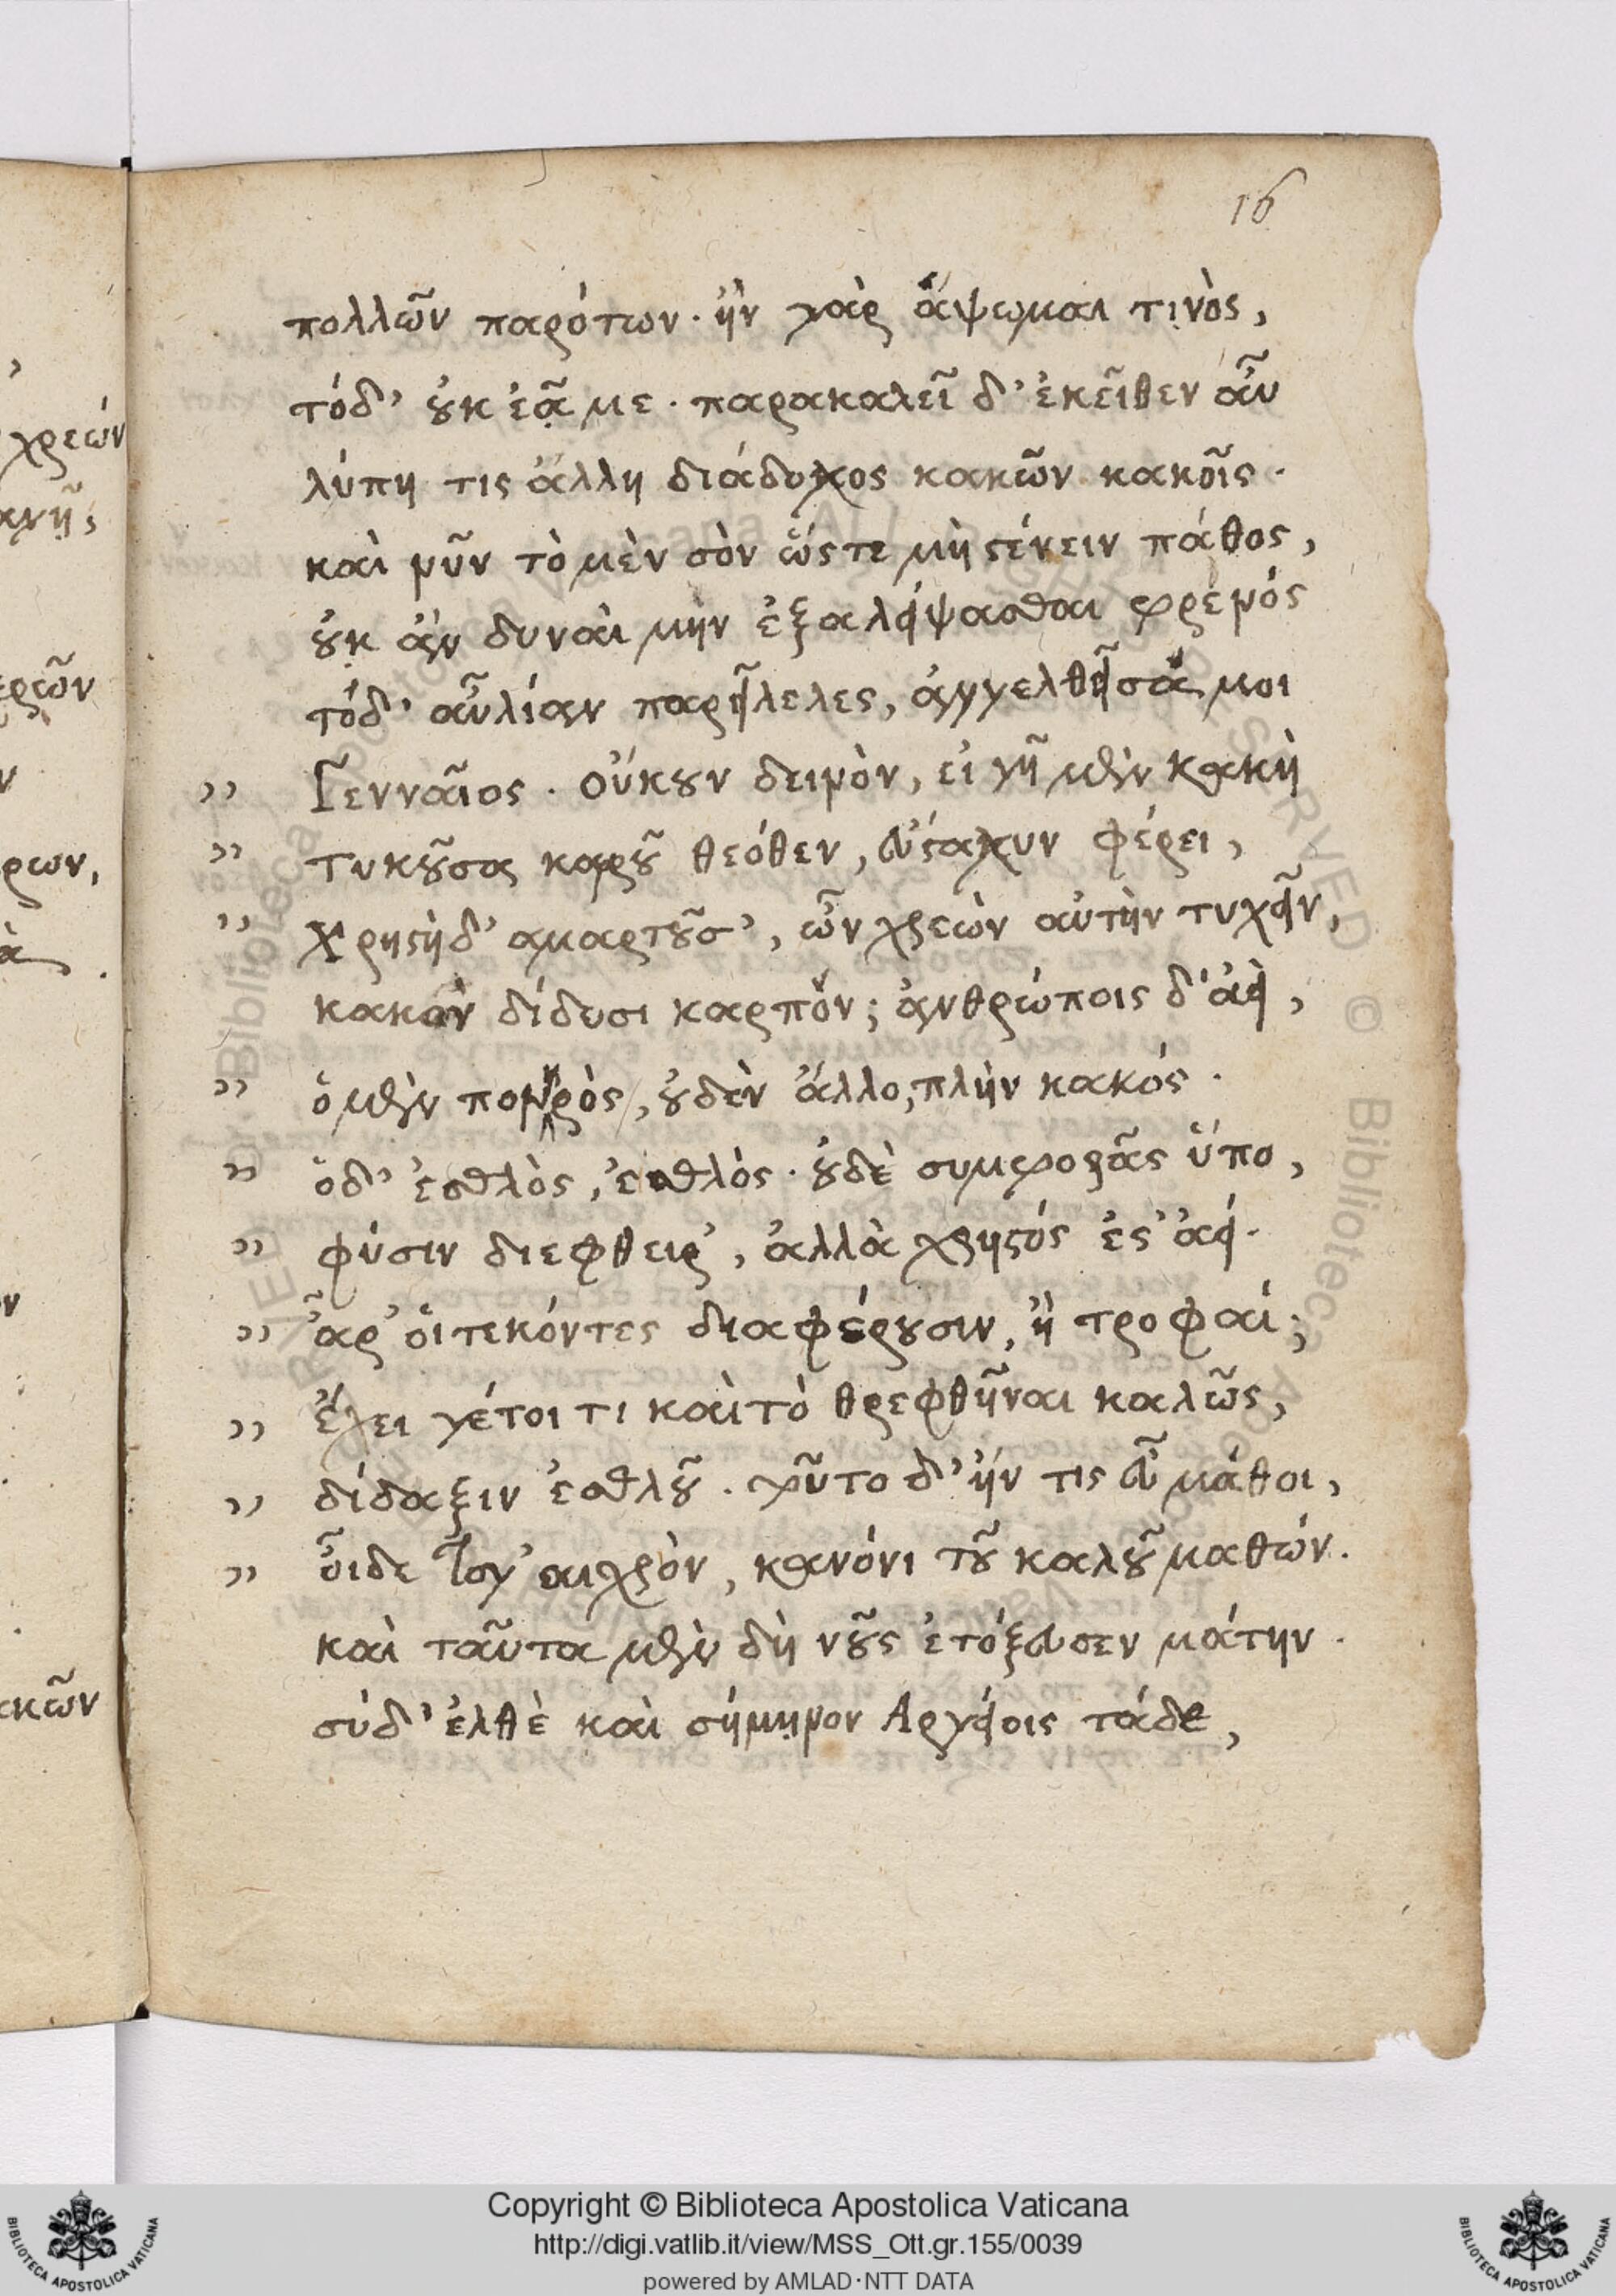 16
πολλῶν παρότων · ἢν γὰρ ἅψωμαι τινὸς,
τόδ' ȣκ ἐᾷ με · παρακαλεῖ δ' ἐκεῖθεν αὖ
λύπη τις ἄλλη διάδοχος κακῶν κακοῖς ·
καὶ νῦν τὸ μὲν σὸν ὥς τε μὴ ϛένειν πάθος,
ȣκ ἂν δυναὶ μην ἐξαλείψασθαι φρενός
τόδ' αὖ λίαν παρεῖλελες, ἀγγελθεῖσά μοι
" Γενναῖος · Οὔκȣν δεινὸν, εἰ γῆ μὲν κακὴ
" τυκȣ͂σα καρȣ͂ θεόθεν, εὖ ϛάχυν φέρει,
" Χρηϛὴ δ' αμαρτȣ͂σ', ὧν χρεὼν αὐτὴν τυχεῖν,
κακὸν δίδυσι καρπὸν; ἀνθρώποις δ' ἀεὶ,
" ὁ μὲν πονηρὸς, ȣ̓δὲν ἄλλο, πλὴν κακός ·
" ὁδ' ἐσθλὸς, ἐσθλός · ȣ̓δὲ συμφορᾶς ὕπο,
" φύσιν διεφθειρ', ἀλλὰ χρηϛός ἐϛ' ἀεί ·
" ἆρ' ὁι τεκόντες διαφέρȣσιν, ἢ τροφαί;
" ἔχει γέ τοι τι καὶ τὸ θρεφθῆναι καλῶς,
" δίδαξιν ἐσθλȣ͂ · τȣ͂το δ' ἤν τις εὖ μάθοι,
" οἶδε τό γ' αιχρὸν, κανόνι τȣ͂ καλȣ͂ μαθών.
καὶ ταῦτα μὲν δὴ νȣ͂ς ἐτόξευσεν μάτην ·
σύ δ' ἐλθὲ καὶ σήμηνον Αργείοις τάδε,
Copyright © Biblioteca Apostolica Vaticana
http://digi.vatlib.it/view/MSS_Ott.gr.155/0039
powered by AMLAD·NTT DATA